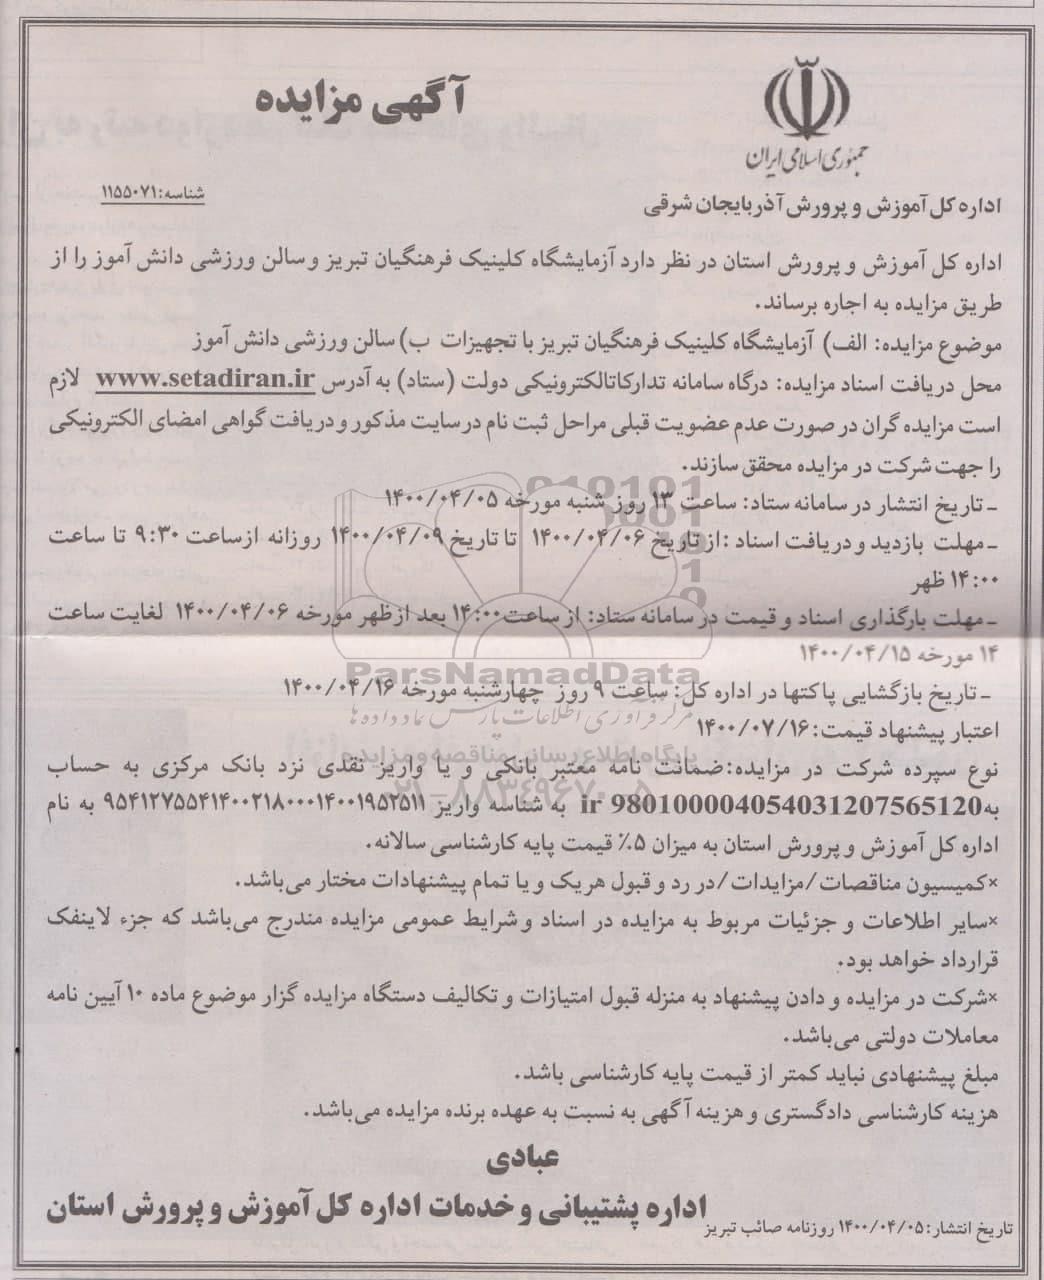 جمهوری اسلامی ایران
آگهی مزایده
شناسه: ۱۱۵۵۰۷۱
اداره کل آموزش و پرورش آذربایجان شرقی
اداره کل آموزش و پرورش استان در نظر دارد آزمایشگاه کلینیک فرهنگیان تبریز و سالن ورزشی دانش آموز را از
طریق مزایده به اجاره برساند.
موضوع مزایده: الف) آزمایشگاه کلینیک فرهنگیان تبریز با تجهیزات ب) سالن ورزشی دانش آموز
محل دریافت اسناد مزایده: درگاه سامانه تدارکاتالکترونیکی دولت (ستاد) به آدرس www.setadiran.ir لازم
است مزایده گران در صورت عدم عضویت قبلی مراحل ثبت نام در سایت مذکور و دریافت گواهی امضای الکترونیکی
را جهت شرکت در مزایده محقق سازند.
ـ تاریخ انتشار در سامانه ستاد: ساعت ۱۳ روز شنبه مورخه ۱۴۰۰/۰۴/۰۵
ـ مهلت بازدید و دریافت اسناد :از تاریخ ۱۴۰۰/۰۴/۰۶ تا تاریخ ۱۴۰۰/۰۴/۰۹ روزانه ازساعت ۹:۳۰ تا ساعت
۱۴:۰۰ ظهر
ـ مهلت بارگذاری اسناد و قیمت در سامانه ستاد: از ساعت ۱۴:۰۰ بعد ازظهر مورخه ۱۴۰۰/۰۴/۰۶ لغایت ساعت
۱۴ مورخه ۱۴۰۰/۰۴/۱۵
ـ تاریخ بازگشایی پاکتها در اداره کل: ساعت ۹ روز چهارشنبه مورخه ۱۴۰۰/۰۴/۱۶
اعتبار پیشنهاد قیمت: ۱۴۰۰/۰۷/۱۶
نوع سپرده شرکت در مزایده:ضمانت نامه معتبر بانکی و یا واریز نقدی نزد بانک مرکزی به حساب
بهir 980100004054031207565120 به شناسه واریز ۹۵۴۱۲۷۵۵۴۱۴۰۰۲۱۸۰۰۰۱۴۰۰۱۹۵۲۵۱۱ به نام
اداره کل آموزش و پرورش استان به میزان ۵٪ قیمت پایه کارشناسی سالانه.
×کمیسیون مناقصات/مزایدات/در رد و قبول هریک و یا تمام پیشنهادات مختار می‌باشد.
×سایر اطلاعات و جزئیات مربوط به مزایده در اسناد و شرایط عمومی مزایده مندرج می‌باشد که جزء لاینفک
قرارداد خواهد بود.
×شرکت در مزایده و دادن پیشنهاد به منزله قبول امتیازات و تکالیف دستگاه مزایده گزار موضوع ماده ۱۰ آیین نامه
معاملات دولتی می‌باشد.
مبلغ پیشنهادی نباید کمتر از قیمت پایه کارشناسی باشد.
هزینه کارشناسی دادگستری و هزینه آگهی به نسبت به عهده برنده مزایده می‌باشد.
عبادی
اداره پشتیبانی و خدمات اداره کل آموزش و پرورش استان
تاریخ انتشار: ۱۴۰۰/۰۴/۰۵ روزنامه صائب تبریز
ParsNamadData
مرکز فرآوری اطلاعات پارس نماد داده ها
پایگاه اطلاع رسانی مناقصه و مزایده
۰۲۱-۸۸۳۴۹۶۷۰-۵